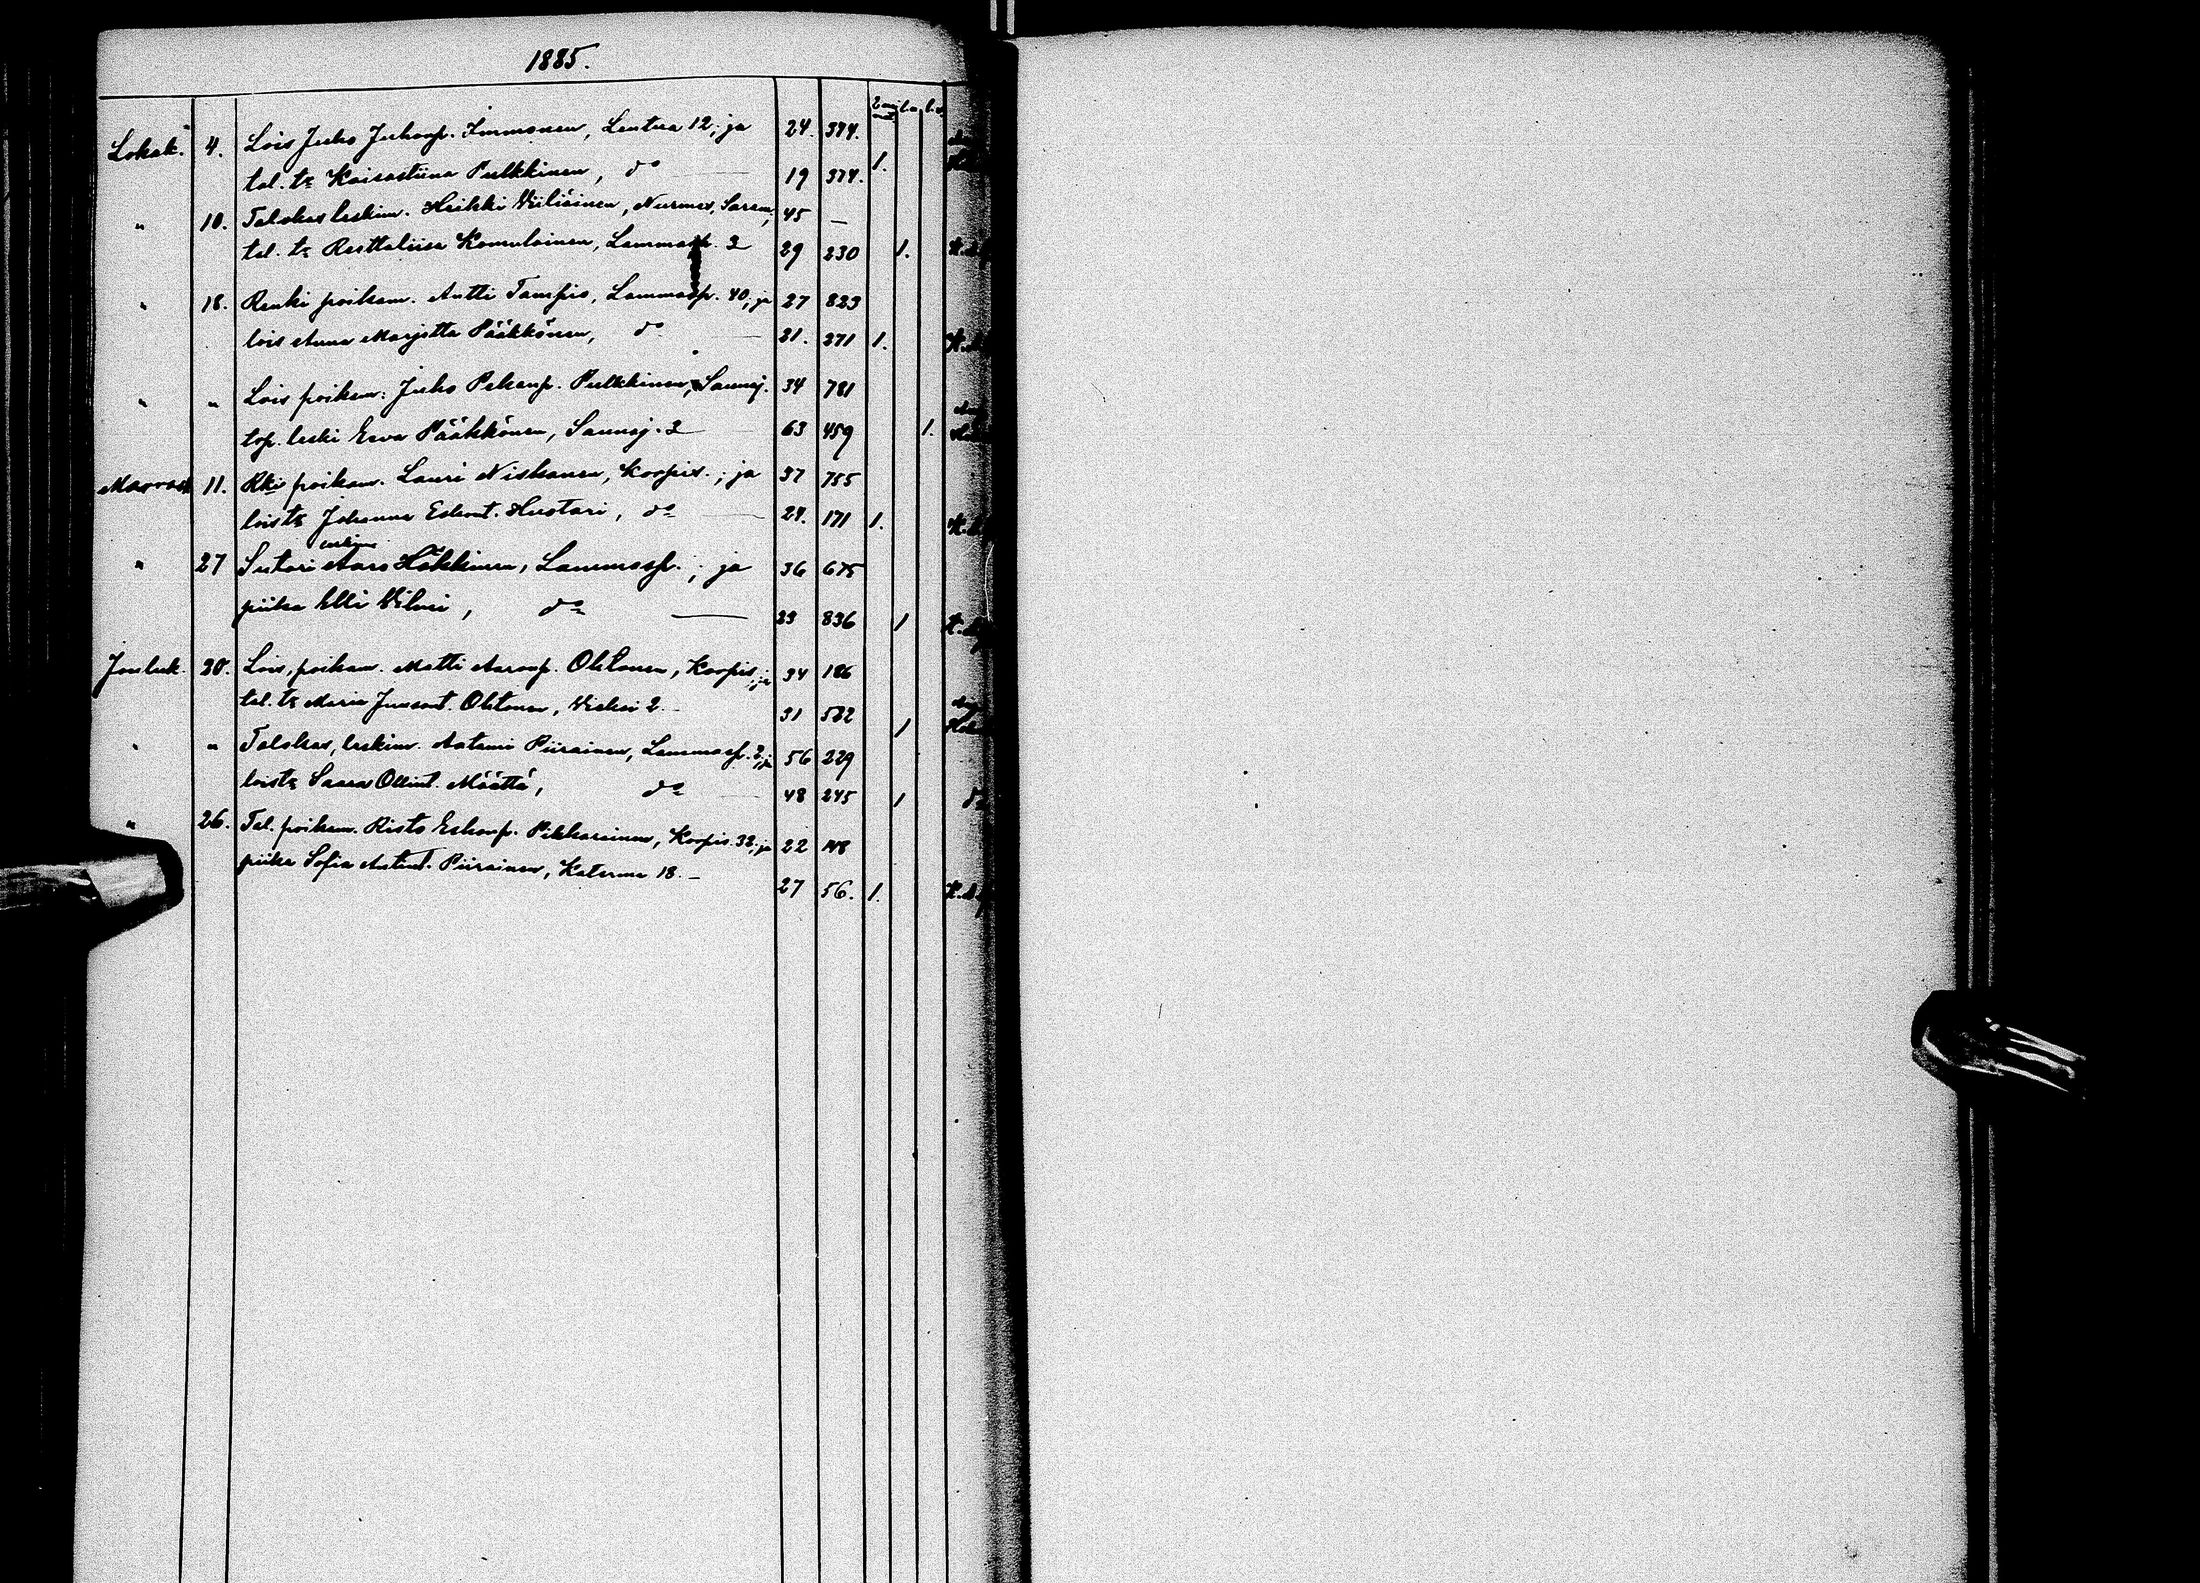 1885.
Lokak. 4. Lois Juho Juhonp. Immonen, Lentua 12; ja 24. 374.
tal. tr Kaisastiina Pulkkinen, do 19 374. 1.
" 10. Talokas leskim. Heikki Väliäinen, Nurmes, 45 —
tal. tr Reettaliisa Komulainen, Lammasp. 2 29 230 1.
" 18. Renki poikam. Antti Tampio, Lammasp. 40; ja 27 823
lois Anna Marjetta Pääkkönen, do 31. 371 1.
" " Lois poikam: Juho Pekanp. Pulkkinen, Saunaj. 34 781
top. leski Eeva Pääkkönen, Saunaj. 2 63 459 1.
Marrask 11. Rki poikam. Lauri Niskanen, Koopis.; ja 37 755
lois tr Johanna Eskont. Hustari, do 24. 171 1.
leskim
" 27 Suutari Aaro Häkkinen, Lammasp.; ja 36 675
piika Elli Vilmi, do 23 836 1
Jouluk. 20. Lois, poikam. Matti Aaronp. Ohtonen, Koopis; ja 34 186
tal. tr Maria Junnont. Ohtonen, Vieksi 2. 31 532 1
" " Talokas, leskim. Antemi Piirainen, Lammasp. 2; ja 56 229
lois tr Saara Ollint. Määttä, do 48 245 1
" 26. Tal. poikam. Risto Eskonp. Pikkarainen, Koopis. 32; ja 22 148
piika Sofia Antint. Piirainen, Katerma 18. 27 56. 1.